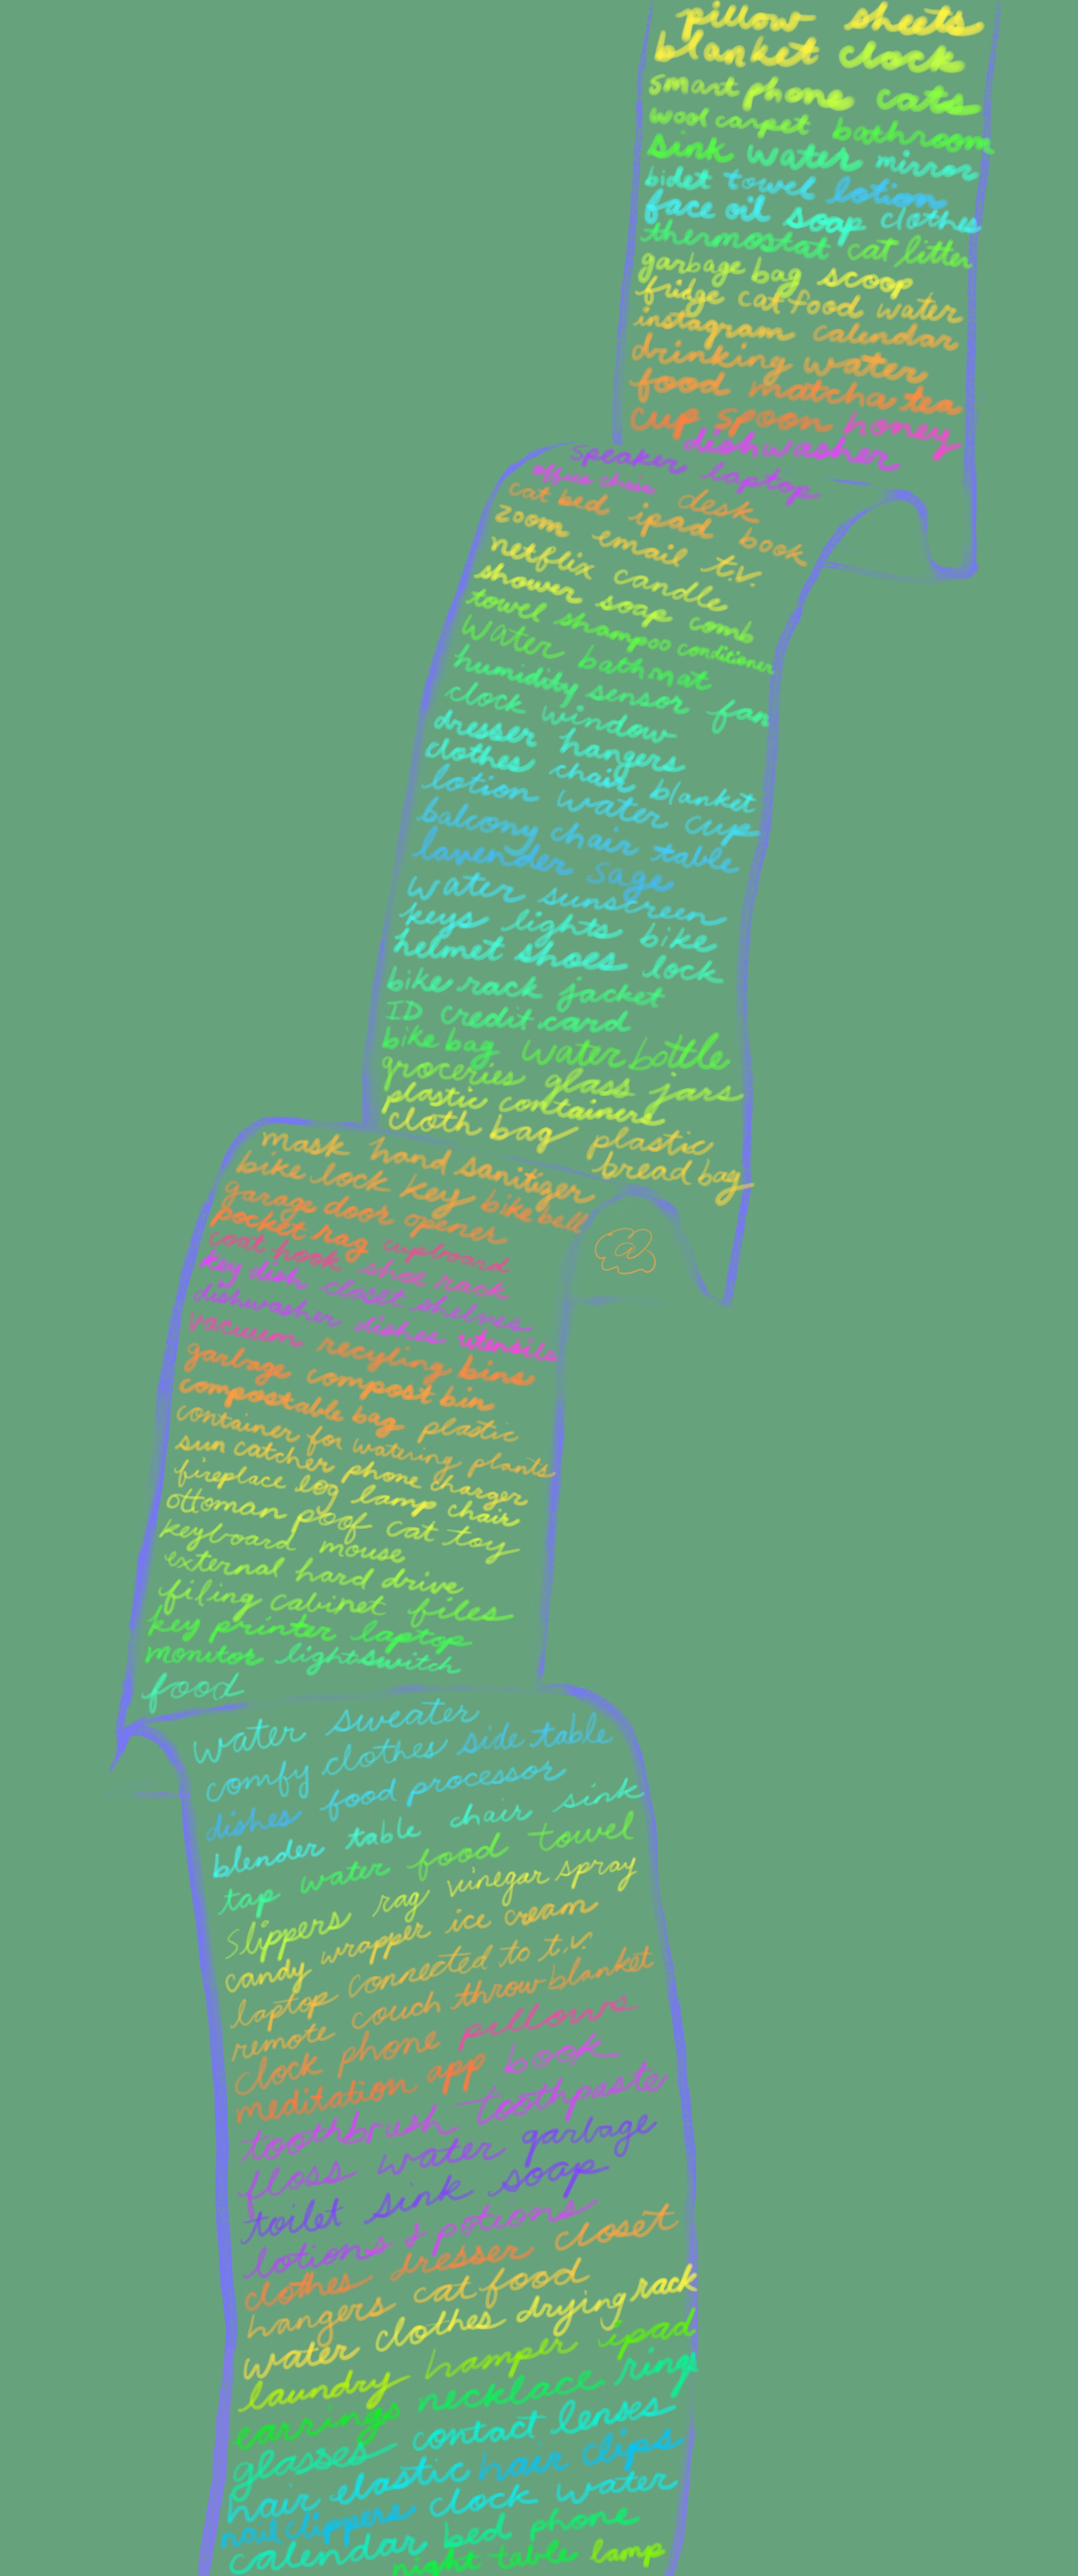 pillow sheets
blanket clock
smart phone cats
wool carpet bathroom
sink water mirror
bidet towel lotion
face oil soap clothes
thermostat cat litter
garbage bag scoop
fridge cat food water
instagram calendar
drinking water
food matcha tea
cup spoon honey
dishwasher
speaker laptop
office chair desk
cat bed ipad book
zoom email t.v.
netflix candle
shower soap comb
towel shampoo conditioner
water bathmat
humidity sensor fan
clock window
dresser hangers
clothes chair blanket
lotion water cup
balcony chair table
lavender sage
water sunscreen
keys lights bike
helmet shoes lock
bike rack jacket
ID credit card
bike bag water bottle
groceries glass jars
plastic containers
cloth bag plastic
bread bag
mask hand sanitizer
bike lock key bike bell
garage door opener
pocket rag cupboard
coat hook shoe rack
key dish closet shelves
dishwasher dishes utensils
vacuum recyling bins
garbage compost bin
compostable bag plastic
container for watering plants
sun catcher phone charger
fireplace log lamp chair
ottoman poof cat toy
keyboard mouse
external hard drive
filing cabinet files
key printer laptop
monitor lightswitch
food
water sweater
comfy clothes side table
dishes food processor
blender table chair sink
tap water food towel
slippers rag vinegar spray
candy wrapper ice cream
laptop connected to t.v.
remote couch throw blanket
clock phone pillows
meditation app book
toothbrush toothpaste
floss water garbage
toilet sink soap
lotions & potions
clothes dresser closet
hangers cat food
water clothes drying rack
laundry hamper ipad
earrings necklace rings
glasses contact lenses
hair elastic hair clips
nail clippers clock water
calendar bed phone
night table lamp